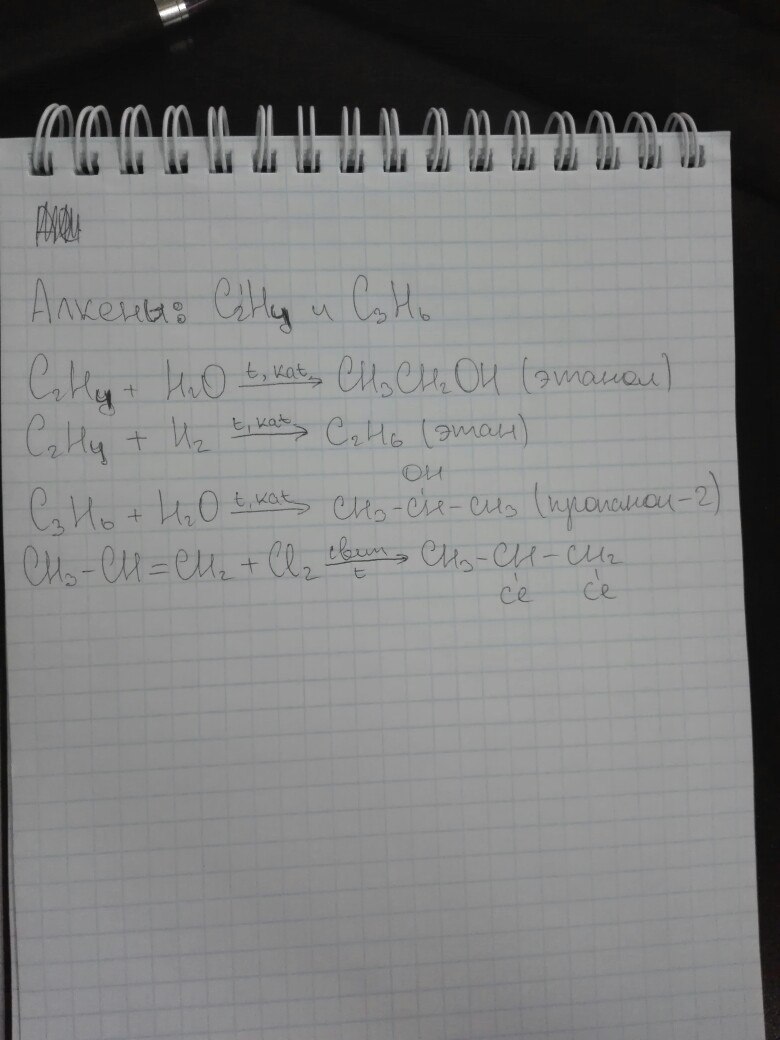 Алкены: C₂H₄ и C₃H₆
C₂H₄ + H₂O t, kat→ CH₃CH₂OH (этанол)
C₂H₄ + H₂ t, kat→ C₂H₆ (этан)
OH
C₃H₆ + H₂O t, kat→ CH₃-CH-CH₃ (пропанол-2)
CH₃-CH=CH₂ + Cl₂ t→ CH₃-CH-CH₂
Cl Cl